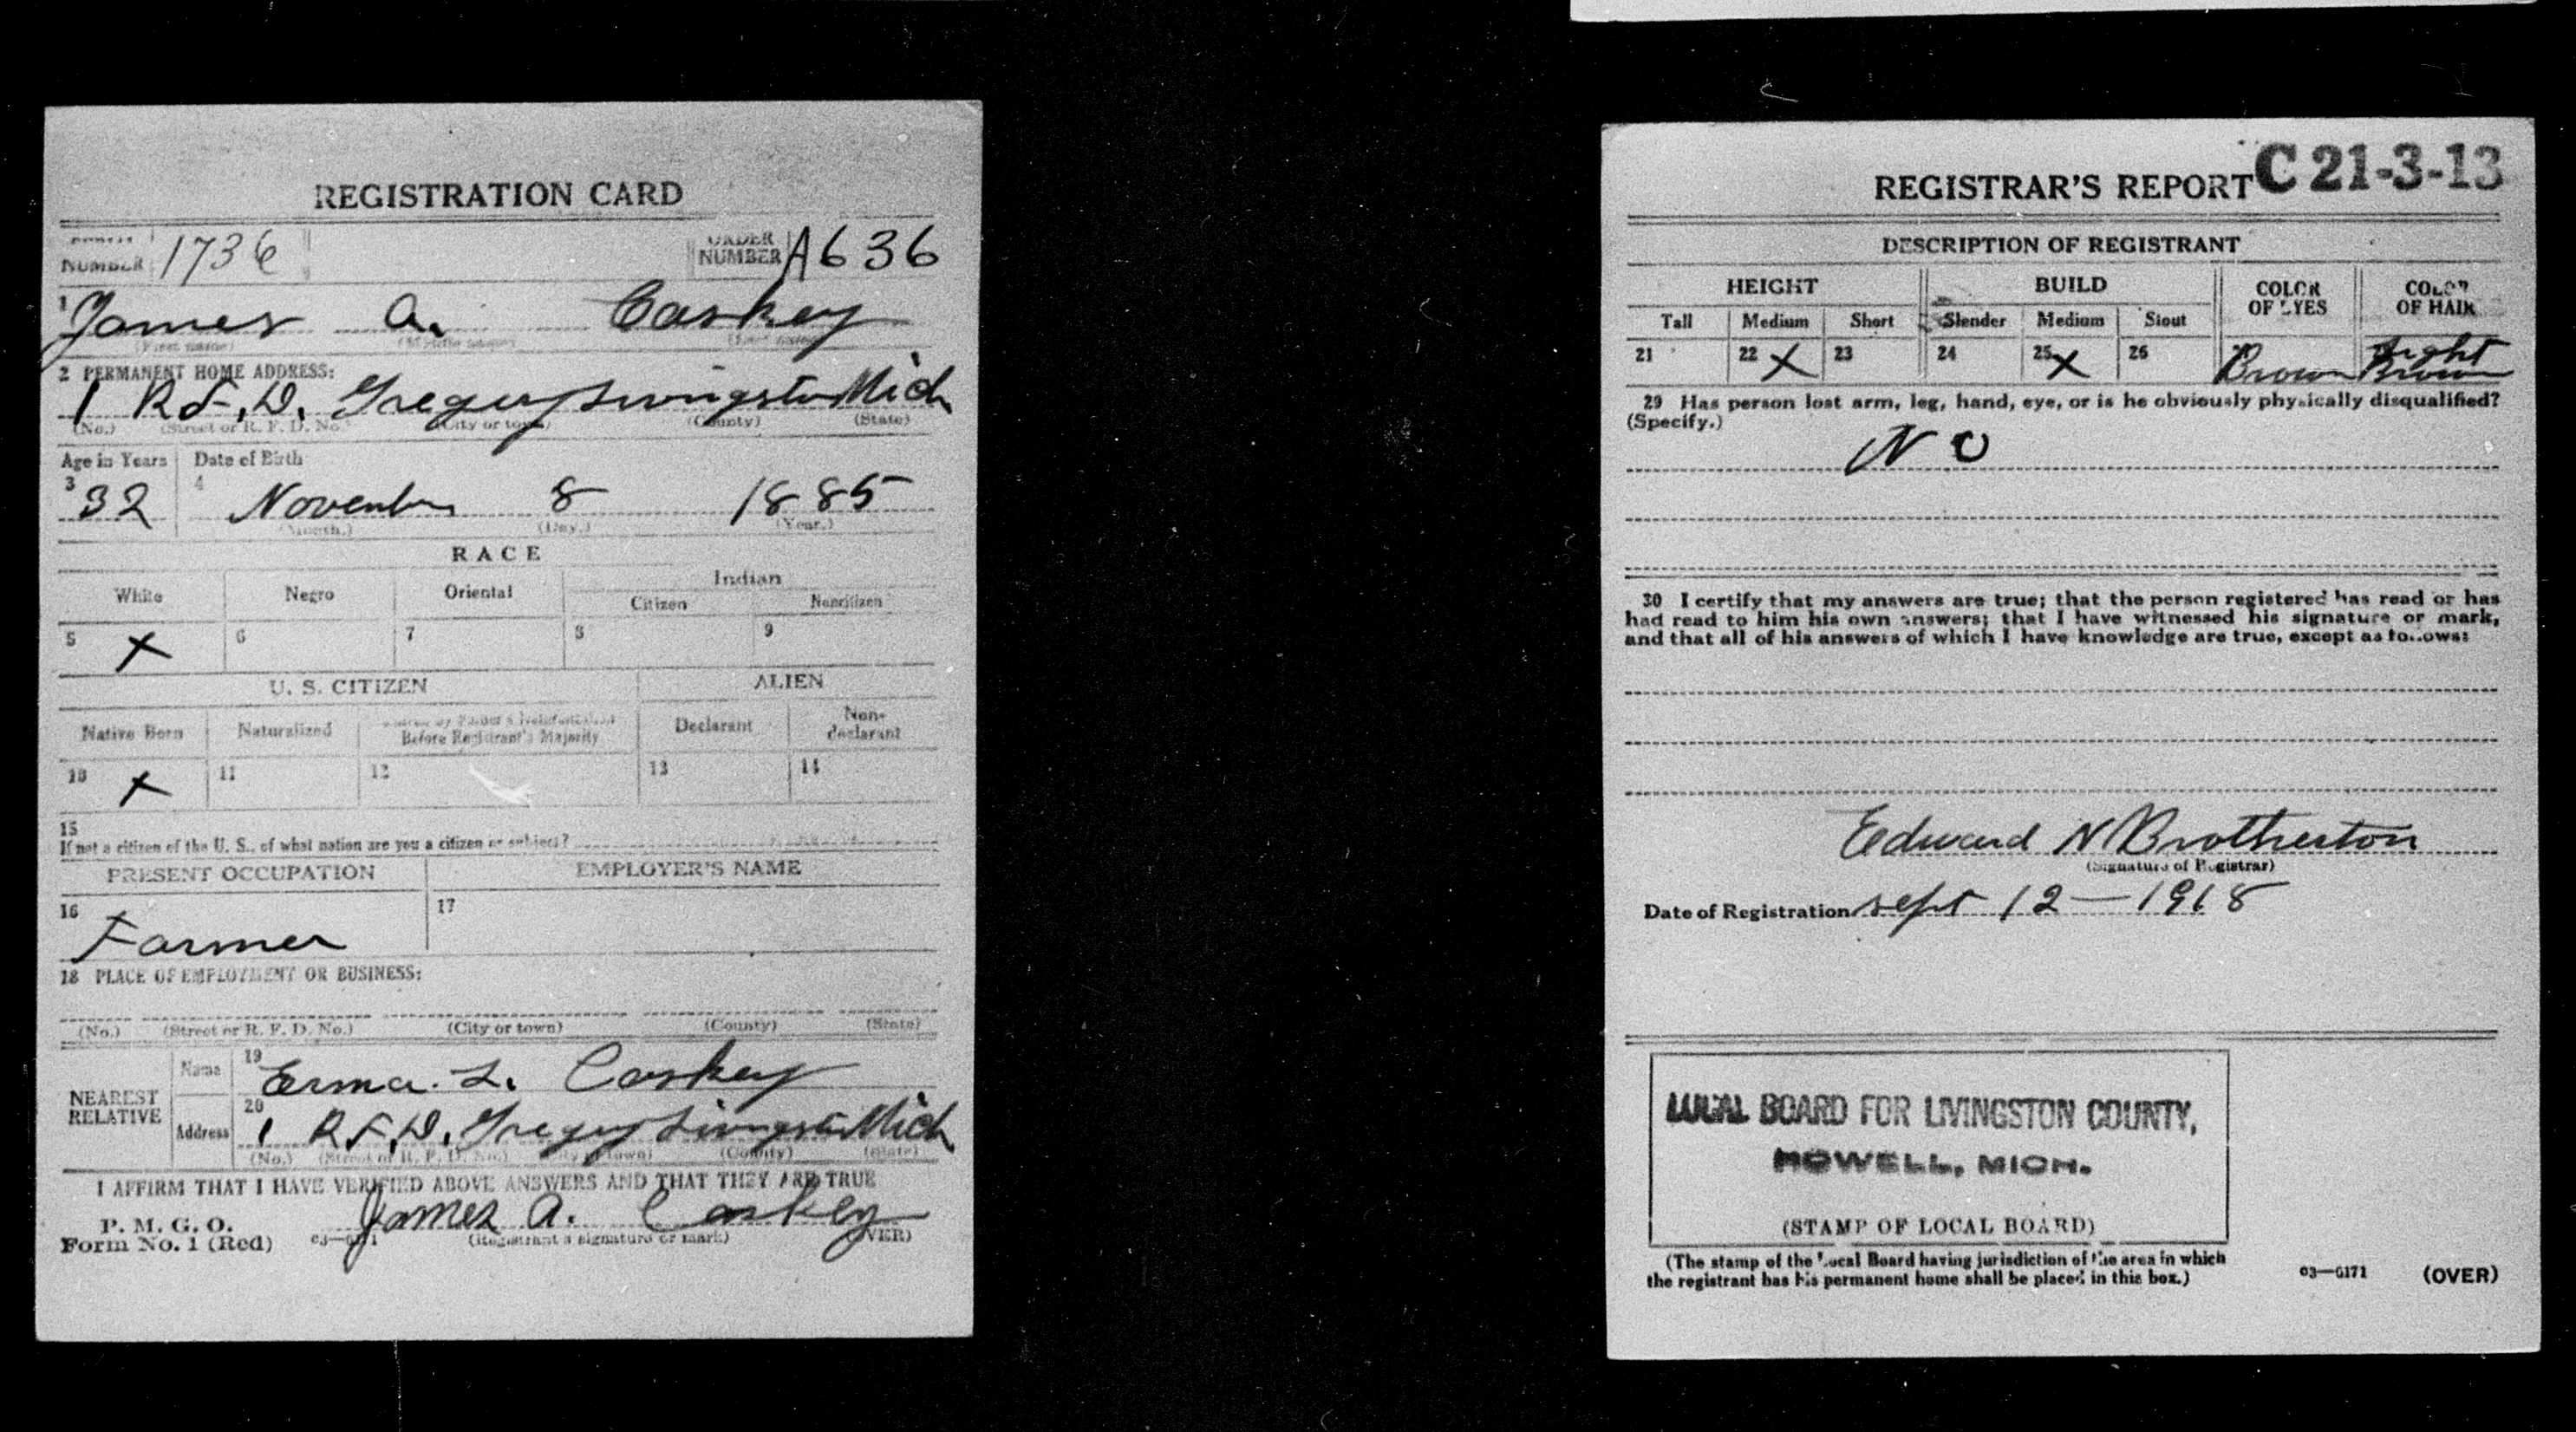 REGISTRATION CARD
SERIAL NUMBER 1736 ORDER NUMBER A636
1 James A. Caskey
(First name) (Middle name) (Last name)
2 PERMANENT HOME ADDRESS:
1 R.F.D. Gregory Livingston Mich
(No.) (Street or R. F. D. No.) (City or town) (County) (State)
Age in Years Date of Birth
3 32 4 November 8 1885
(Month.) (Day.) (Year.)
RACE
White Negro Oriental Indian
Citizen Noncitizen
5 X 6 7 8 9
U. S. CITIZEN ALIEN
Native Born Naturalized Citizen by Father's Naturalization Before Registrant's Majority Declarant Non-declarant
10 X 11 12 13 14
15
If not a citizen of the U. S., of what nation are you a citizen or subject?
PRESENT OCCUPATION EMPLOYER'S NAME
16 Farmer 17
18 PLACE OF EMPLOYMENT OR BUSINESS:
(No.) (Street or R. F. D. No.) (City or town) (County) (State)
NEAREST RELATIVE
Name 19 Erma. L. Caskey
Address 20 1 R.F.D. Gregory Livingston Mich
(No.) (Street or R. F. D. No.) (City or town) (County) (State)
I AFFIRM THAT I HAVE VERIFIED ABOVE ANSWERS AND THAT THEY ARE TRUE
P. M. G. O.
Form No. 1 (Red) 03—6171 James A. Caskey
(Registrant's signature or mark) (OVER)
REGISTRAR'S REPORT C 21-3-13
DESCRIPTION OF REGISTRANT
HEIGHT BUILD COLOR OF EYES COLOR OF HAIR
Tall Medium Short Slender Medium Stout
21 22 X 23 24 25 X 26 Brown Light Brown
29 Has person lost arm, leg, hand, eye, or is he obviously physically disqualified?
(Specify.)
No
30 I certify that my answers are true; that the person registered has read or has
had read to him his own answers; that I have witnessed his signature or mark,
and that all of his answers of which I have knowledge are true, except as follows:
Edward N Brotherton
(Signature of Registrar)
Date of Registration Sept 12—1918
LOCAL BOARD FOR LIVINGSTON COUNTY,
HOWELL, MICH.
(STAMP OF LOCAL BOARD)
(The stamp of the Local Board having jurisdiction of the area in which
the registrant has his permanent home shall be placed in this box.)
03—6171 (OVER)